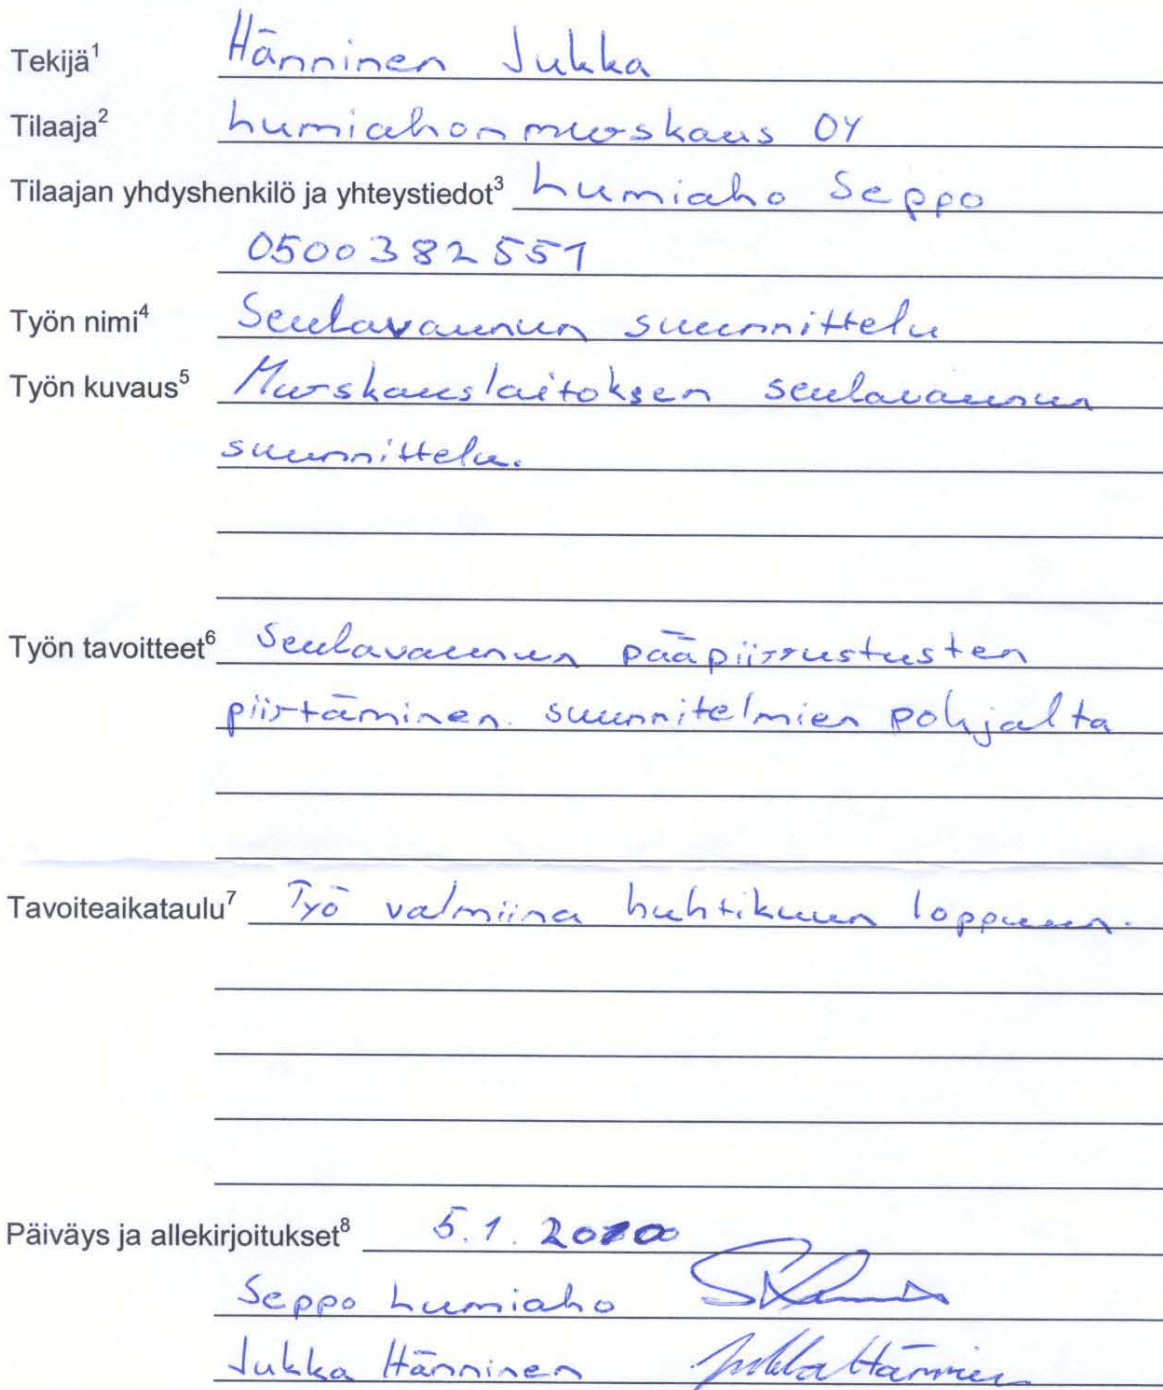 Tekijä¹ Hänninen Jukka
Tilaaja² Lumiahonmurskaus OY
Tilaajan yhdyshenkilö ja yhteystiedot³ Lumiaho Seppo
0500382551
Työn nimi⁴ Seulavaunun suunnittelu
Työn kuvaus⁵ Murskauslaitoksen seulavaunun
suunnittelu.
Työn tavoitteet⁶ Seulavaunun pääpiirrustusten
piirtäminen suunnitelmien pohjalta
Tavoiteaikataulu⁷ Työ valmiina huhtikuun loppuun.
Päiväys ja allekirjoitukset⁸ 5.1.2010
Seppo Lumiaho
Jukka Hänninen Jukka Hänninen